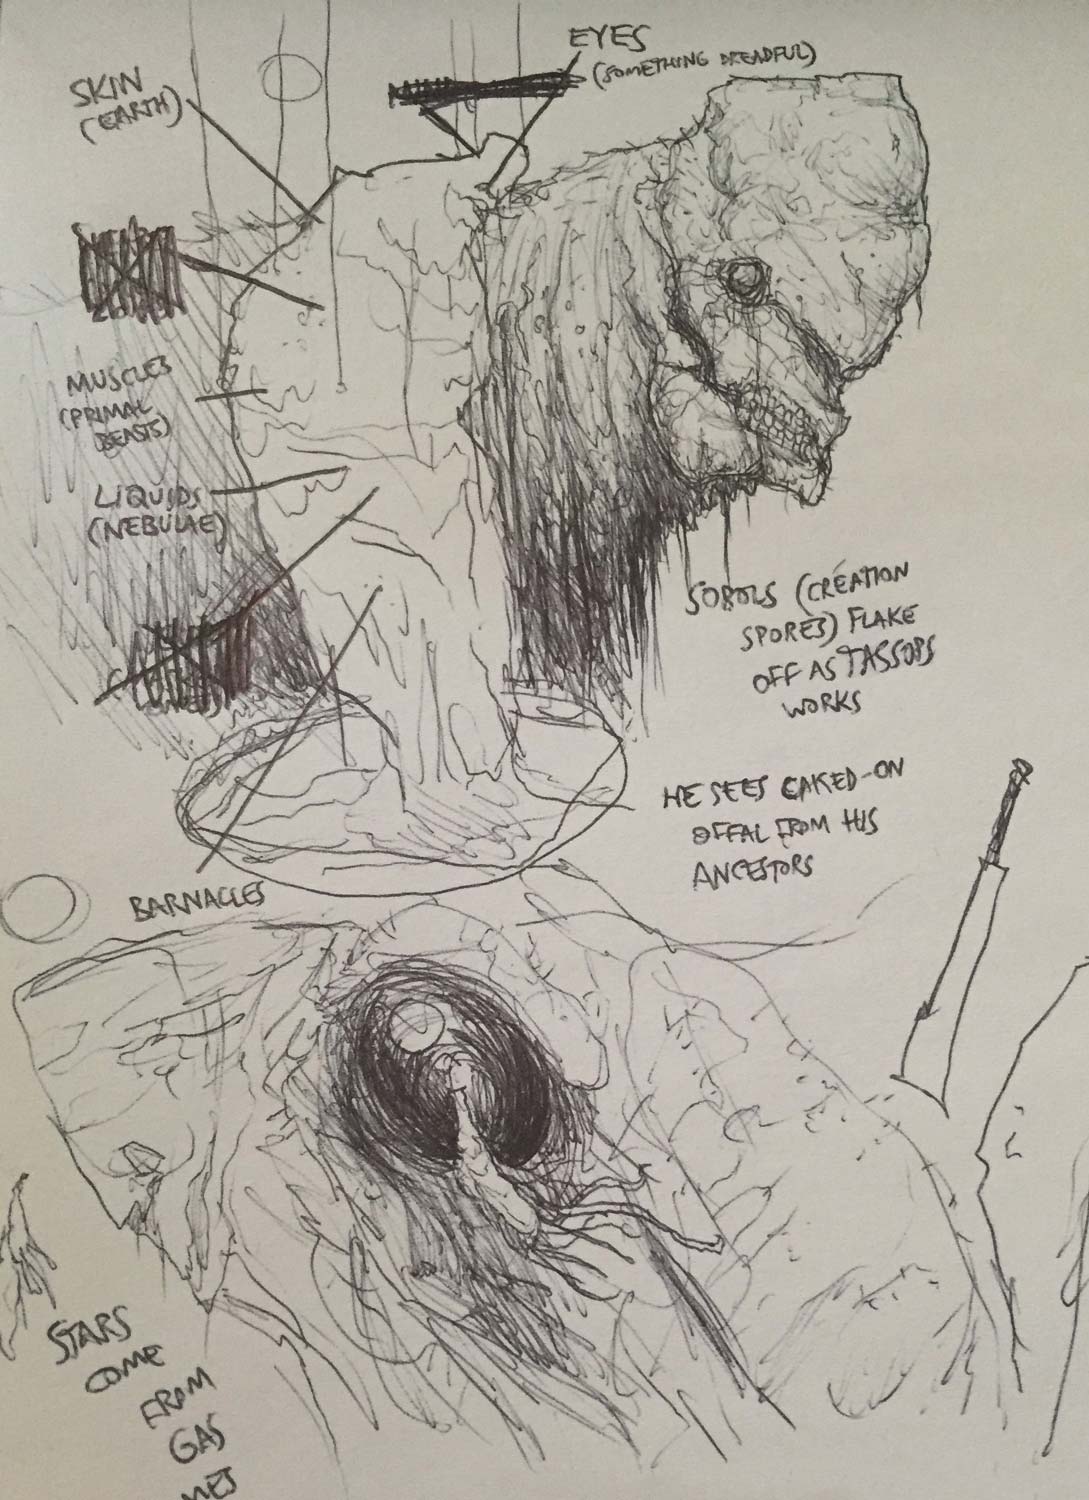 EYES
(SOMETHING DREADFUL)
SKIN
(EARTH)
MUSCLES
(PRIMAL
BEASTS)
LIQUIDS
(NEBULAE)
SOBOLS (CREATION
SPORES) FLAKE
OFF AS TASSOPS
WORKS
HE SEES CAKED-ON
OFFAL FROM HIS
ANCESTORS
BARNACLES
STARS
COME
FROM
GAS